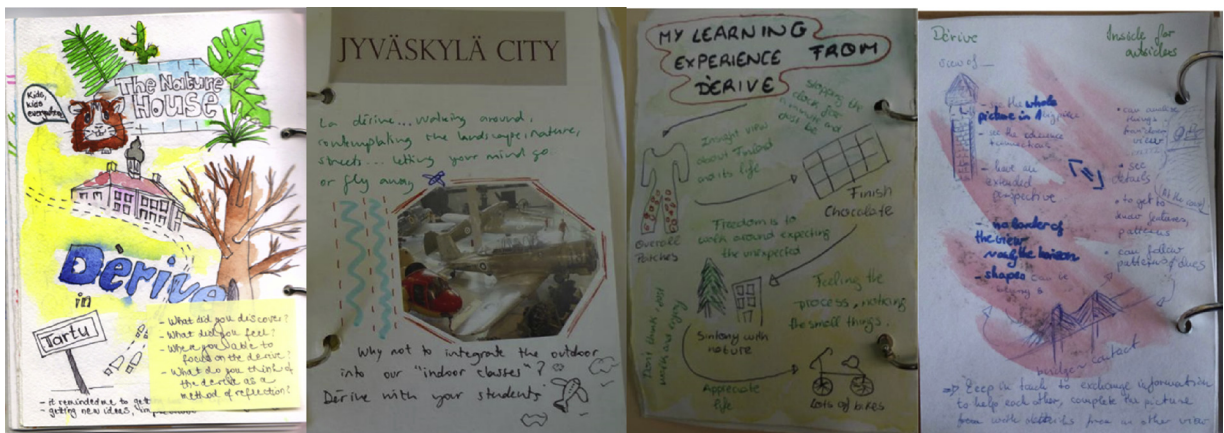 Kids,
kiss
everywhere
The Nature
House
Dérive
in
Tartu
- What did you discover?
- What did you feel?
- Were you able to
focus on the derive?
- What do you think of
the derive as a
method of reflection?
- it reminded me to get
- getting new ideas,
JYVÄSKYLÄ CITY
La dérive... walking around,
contemplating the landscape, nature,
streets... letting your mind go
or fly away
Why not to integrate the outdoor
into our "indoor classes"?
Dérive with your students
MY LEARNING
EXPERIENCE FROM
DÈRIVE
stopping the
clock for
a minute and
just be
Insight view
about Finland
and its life
Finish
Chocolate
Overall
Patches
Freedom is to
walk around expecting
the unexpected
Feeling the
process, noticing
the small things.
Sintony with
nature
Don't think, just
walk and enjoy
Appreciate
life
Lots of bikes
Dérive
Inside for
outsiders
view of
- see the whole
picture in 1
- have an
extended
perspective
- no border of
the view
- shapes can be
• see
details
• to get to
know features,
patterns
• can follow
patterns
bridge
contact
Keep in touch to exchange information
to help each other, complete the picture
from with details from an other view